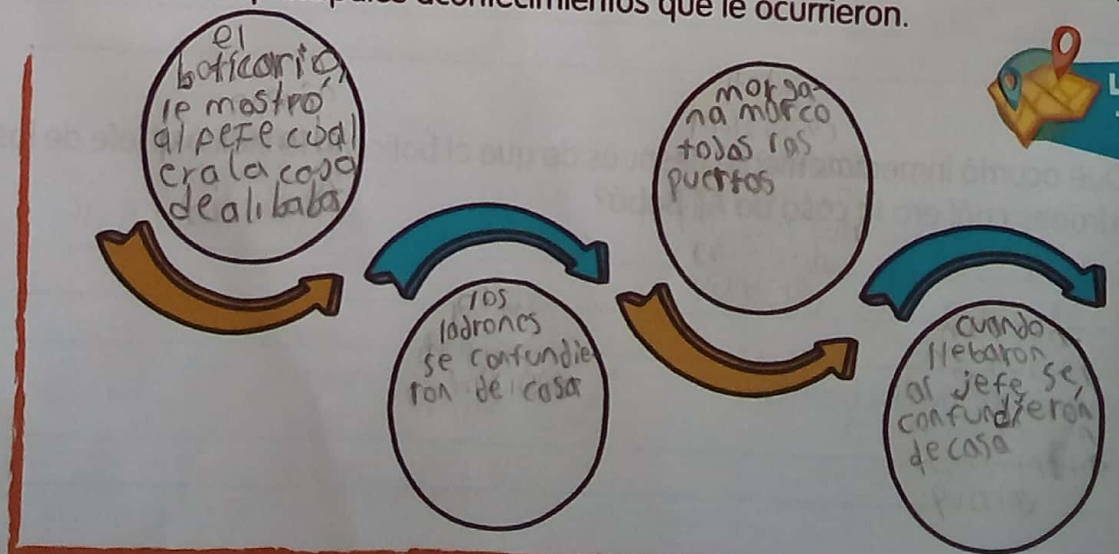 acontecimientos que le ocurrieron.
el
boticario
le mostro
al pefe cual
era la casa
de ali baba
los
ladrones
se confundie
ron de casa
morga-
na marco
todas las
puertas
cuando
llebaron
al jefe se
confundieron
de casa
L